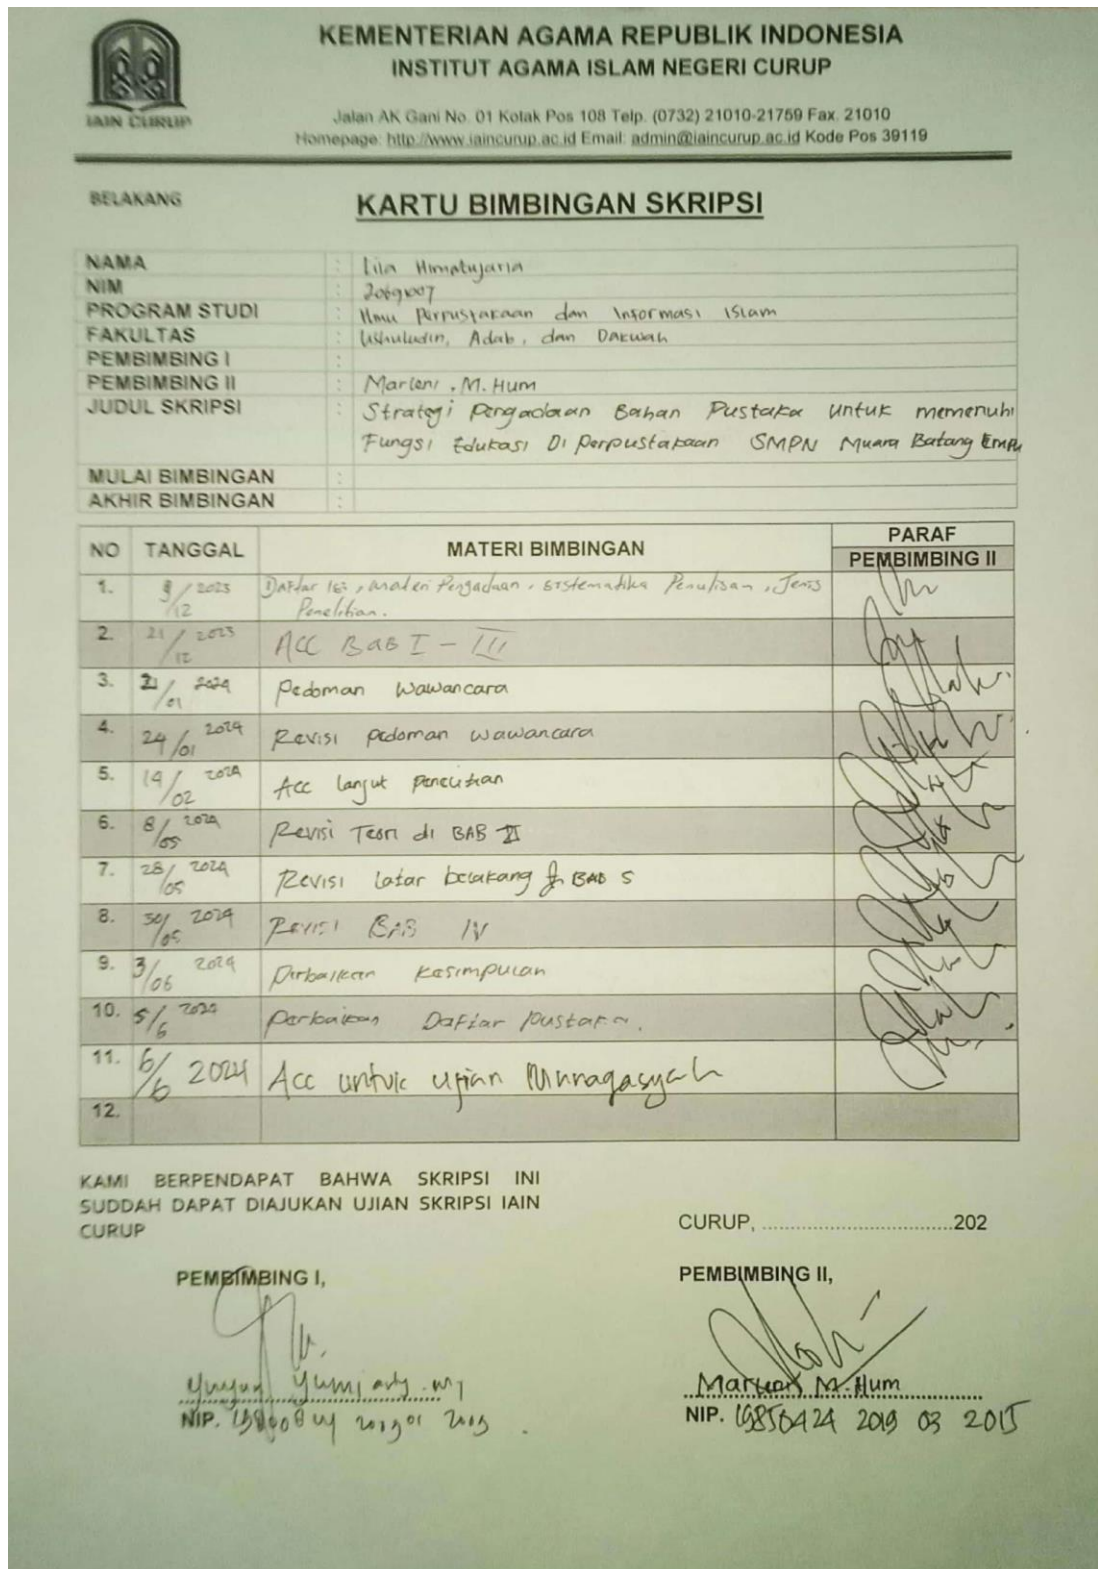 KEMENTERIAN AGAMA REPUBLIK INDONESIA
INSTITUT AGAMA ISLAM NEGERI CURUP
IAIN CURUP
Jalan AK Gani No. 01 Kotak Pos 108 Telp. (0732) 21010-21759 Fax. 21010
Homepage: http://www.iaincurup.ac.id Email: admin@iaincurup.ac.id Kode Pos 39119
BELAKANG
KARTU BIMBINGAN SKRIPSI
NAMA : Lila Himatujaria
NIM : 20691007
PROGRAM STUDI : Ilmu Perpustakaan dan Informasi Islam
FAKULTAS : Ushuludin, Adab, dan Dakwah
PEMBIMBING I :
PEMBIMBING II : Marleni, M. Hum
JUDUL SKRIPSI : Strategi Pengadaan Bahan Pustaka untuk memenuhi
Fungsi Edukasi Di Perpustakaan SMPN Muara Batang Empu
MULAI BIMBINGAN :
AKHIR BIMBINGAN :
NO TANGGAL MATERI BIMBINGAN PARAF
PEMBIMBING II
1. /12 2023 Daftar Isi, materi Pengadaan, sistematika Penulisan, Jenis
Penelitian.
2. 21/12 2023 ACC BAB I - III
3. 21/01 2024 Pedoman Wawancara
4. 24/01 2024 Revisi pedoman wawancara
5. 14/02 2024 Acc lanjut penelitian
6. 8/05 2024 Revisi Teori di BAB II
7. 28/05 2024 Revisi latar belakang BAB 5
8. 30/05 2024 Revisi BAB IV
9. 3/06 2024 Perbaikan kesimpulan
10. 5/6 2024 Perbaikan Daftar pustaka.
11. 6/6 2024 Acc untuk ujian Munaqasyah
12.
KAMI BERPENDAPAT BAHWA SKRIPSI INI
SUDDAH DAPAT DIAJUKAN UJIAN SKRIPSI IAIN
CURUP
CURUP, ..............................202
PEMBIMBING I,
PEMBIMBING II,
Yuyun Yumiarty
Marleni M. Hum
NIP.
NIP. 19850424 2019 03 2015